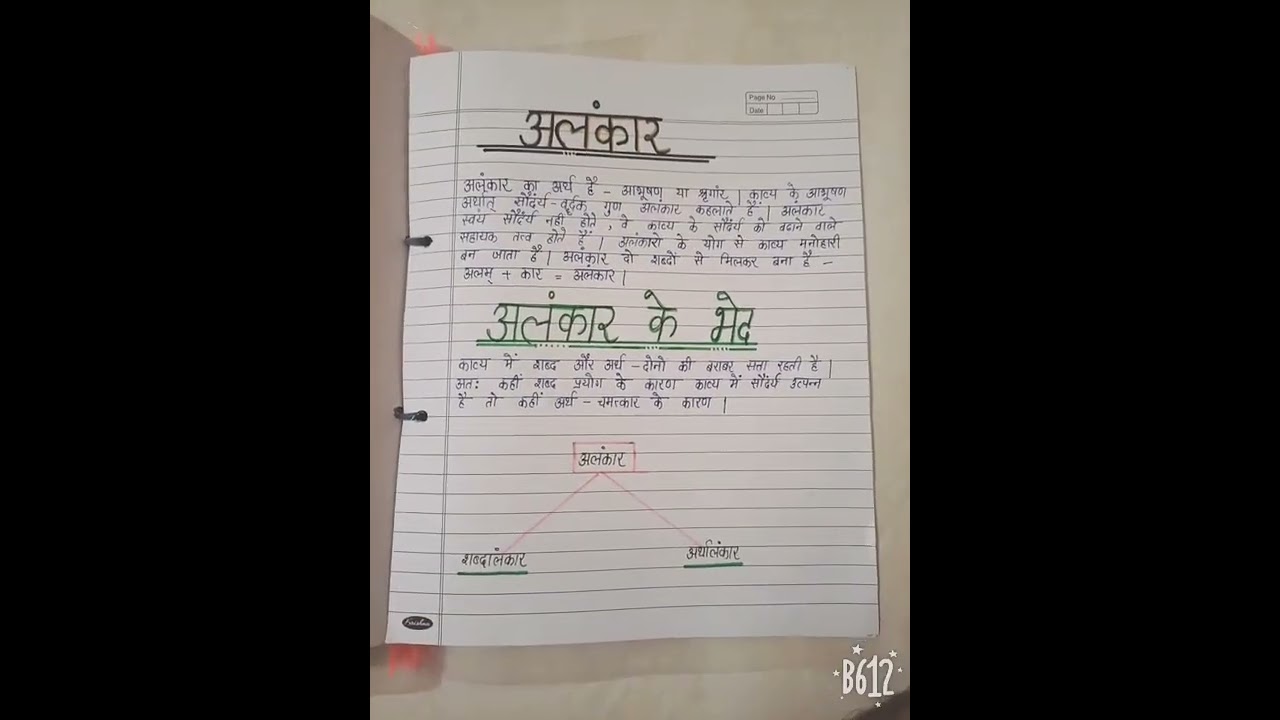 Page No
Date
अलंकार
अलंकार का अर्थ है - आभूषण या श्रृगांर | काव्य के आभूषण
अर्थात् सौंदर्य - वर्द्धक गुण अलंकार कहलाते हैं | अलंकार
स्वयं सौंदर्य नही होते , वे काव्य के सौंदर्य को बढाने वाले
सहायक तत्व होते हैं | अलंकारो के योग से काव्य मनोहारी
बन जाता है | अलंकार दो शब्दों से मिलकर बना है -
अलम् + कार = अलंकार |
अलंकार के भेद
काव्य में शब्द और अर्थ - दोनो की बराबर सत्ता रहती है |
अतः कहीं शब्द प्रयोग के कारण काव्य में सौंदर्य उत्पन्न
है तो कहीं अर्थ - चमत्कार के कारण |
अलंकार
शब्दालंकार अर्थालंकार
B612